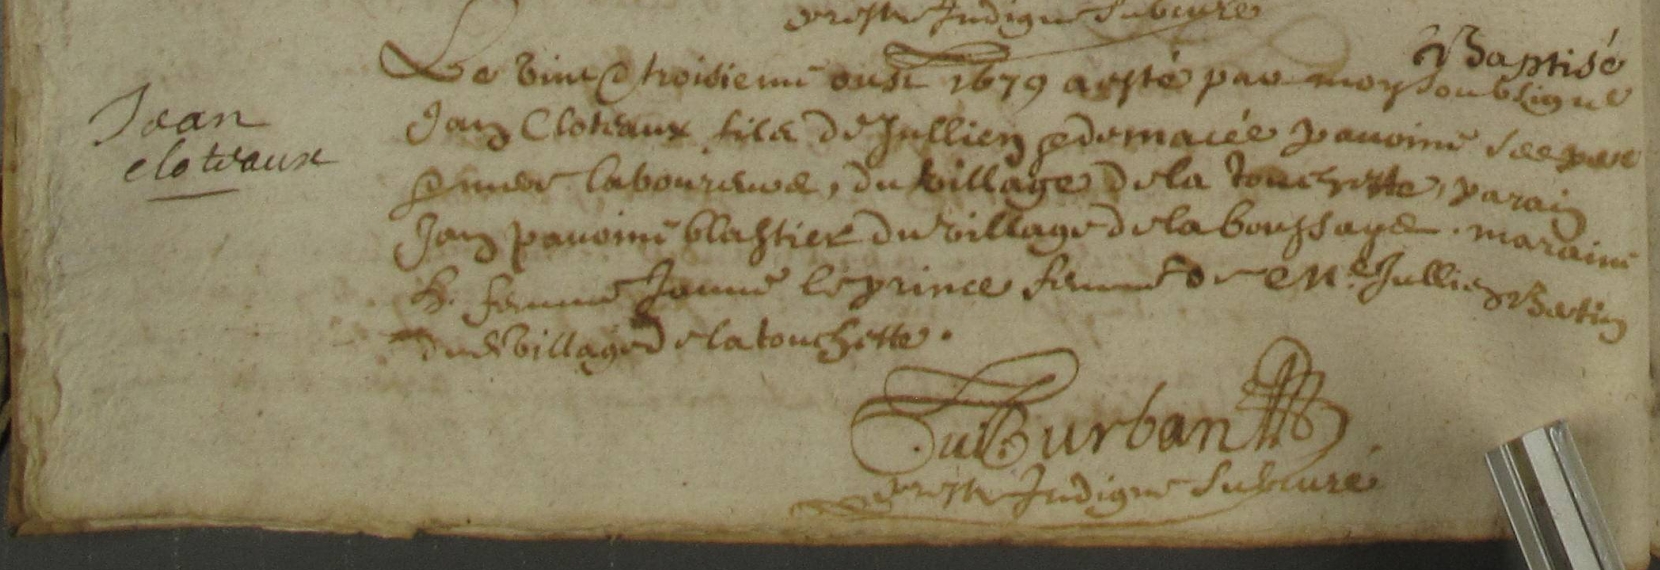 prestre Indigne Subcuré
Baptisé
Le vint & troisieme oust 1679 a esté par moy soubsigné
Jean
cloteaux
Jan Cloteaux fils de Jullien & de macée pavoine ses pere
& mere laboureurs, du village de la touchette, parain
Jan pavoine blastier du village de la boussaye. maraine
h. femme Janne le prince femme de Me Jullien Bertin
dud village de la touchette.
Gui Burban
prestre Indigne Subcuré